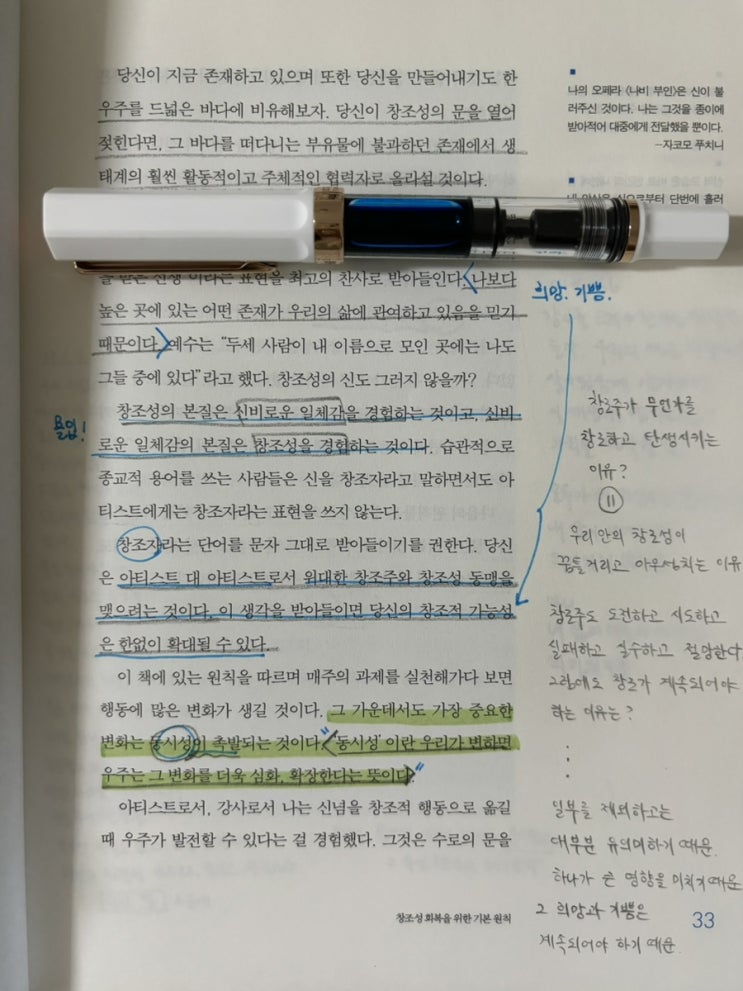 당신이 지금 존재하고 있으며 또한 당신을 만들어내기도 한
우주를 드넓은 바다에 비유해보자. 당신이 창조성의 문을 열어
젖힌다면, 그 바다를 떠다니는 부유물에 불과하던 존재에서 생
태계의 훨씬 활동적이고 주체적인 협력자로 올라설 것이다.
이라는 표현을 최고의 찬사로 받아들인다. 나보다
높은 곳에 있는 어떤 존재가 우리의 삶에 관여하고 있음을 믿기
때문이다. 예수는 “두세 사람이 내 이름으로 모인 곳에는 나도
그들 중에 있다”라고 했다. 창조성의 신도 그러지 않을까?
창조성의 본질은 신비로운 일체감을 경험하는 것이고, 신비
로운 일체감의 본질은 창조성을 경험하는 것이다. 습관적으로
종교적 용어를 쓰는 사람들은 신을 창조자라고 말하면서도 아
티스트에게는 창조자라는 표현을 쓰지 않는다.
창조자라는 단어를 문자 그대로 받아들이기를 권한다. 당신
은 아티스트 대 아티스트로서 위대한 창조주와 창조성 동맹을
맺으려는 것이다. 이 생각을 받아들이면 당신의 창조적 가능성
은 한없이 확대될 수 있다.
이 책에 있는 원칙을 따르며 매주의 과제를 실천해가다 보면
행동에 많은 변화가 생길 것이다. 그 가운데서도 가장 중요한
변화는 동시성이 촉발되는 것이다. ‘동시성’이란 우리가 변하면
우주는 그 변화를 더욱 심화, 확장한다는 뜻이다.
아티스트로서, 강사로서 나는 신념을 창조적 행동으로 옮길
때 우주가 발전할 수 있다는 걸 경험했다. 그것은 수로의 문을
나의 오페라 〈나비 부인〉은 신이 불
러주신 것이다. 나는 그것을 종이에
받아적어 대중에게 전달했을 뿐이다.
–자코모 푸치니
단번에 흘러
몰입!
희망. 기쁨.
창조주가 무언가를
창조하고 탄생시키는
이유?
우리 안의 창조성이
꿈틀거리고 아우성치는 이유
창조주도 도전하고 시도하고
실패하고 실수하고 절망한다
그럼에도 창조가 계속되어야
하는 이유는?
일부를 제외하고는
대부분 유의미하기 때문.
하나가 큰 영향을 미치기 때문
그 희망과 기쁨은
계속되어야 하기 때문.
창조성 회복을 위한 기본 원칙
33